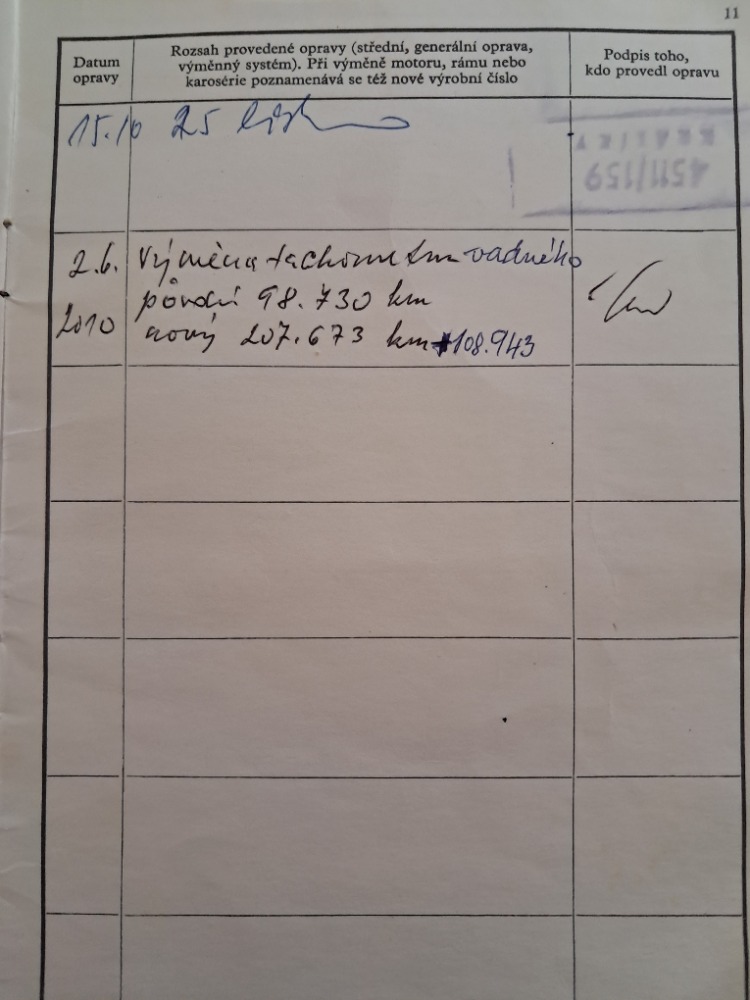 11
Datum
opravy
Rozsah provedené opravy (střední, generální oprava,
výměnný systém). Při výměně motoru, rámu nebo
karosérie poznamenává se též nové výrobní číslo
Podpis toho,
kdo provedl opravu
15.10 25
4511/159
2.6. Výměna tachometru vadného
2010 původní 98.730 km
nový 207.673 km +108.943